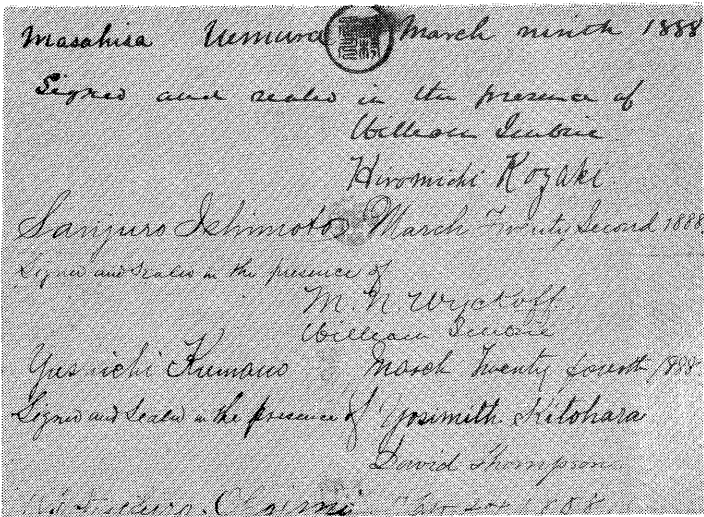 Masahisa Uemura March ninth 1888
Signed and sealed in the presence of
William Imbrie
Hiromichi Kozaki
Sanjuro Ishimoto March Twenty Second 1888.
Signed and Sealed in the presence of
M. N. Wyckoff
William Imbrie
Kumano March Twenty fourth 1888
Signed and Sealed in the presence of Yosimith Kitohara
David Thompson